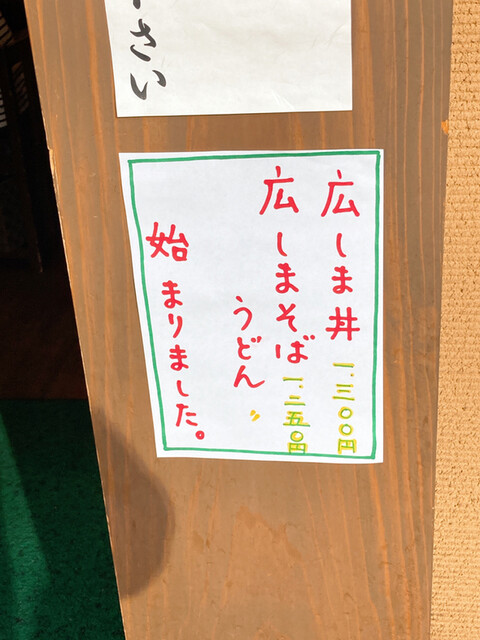 さい
広しま丼 一.三〇〇円
広しまそば 一.二五〇円
うどん 〃
始まりました。